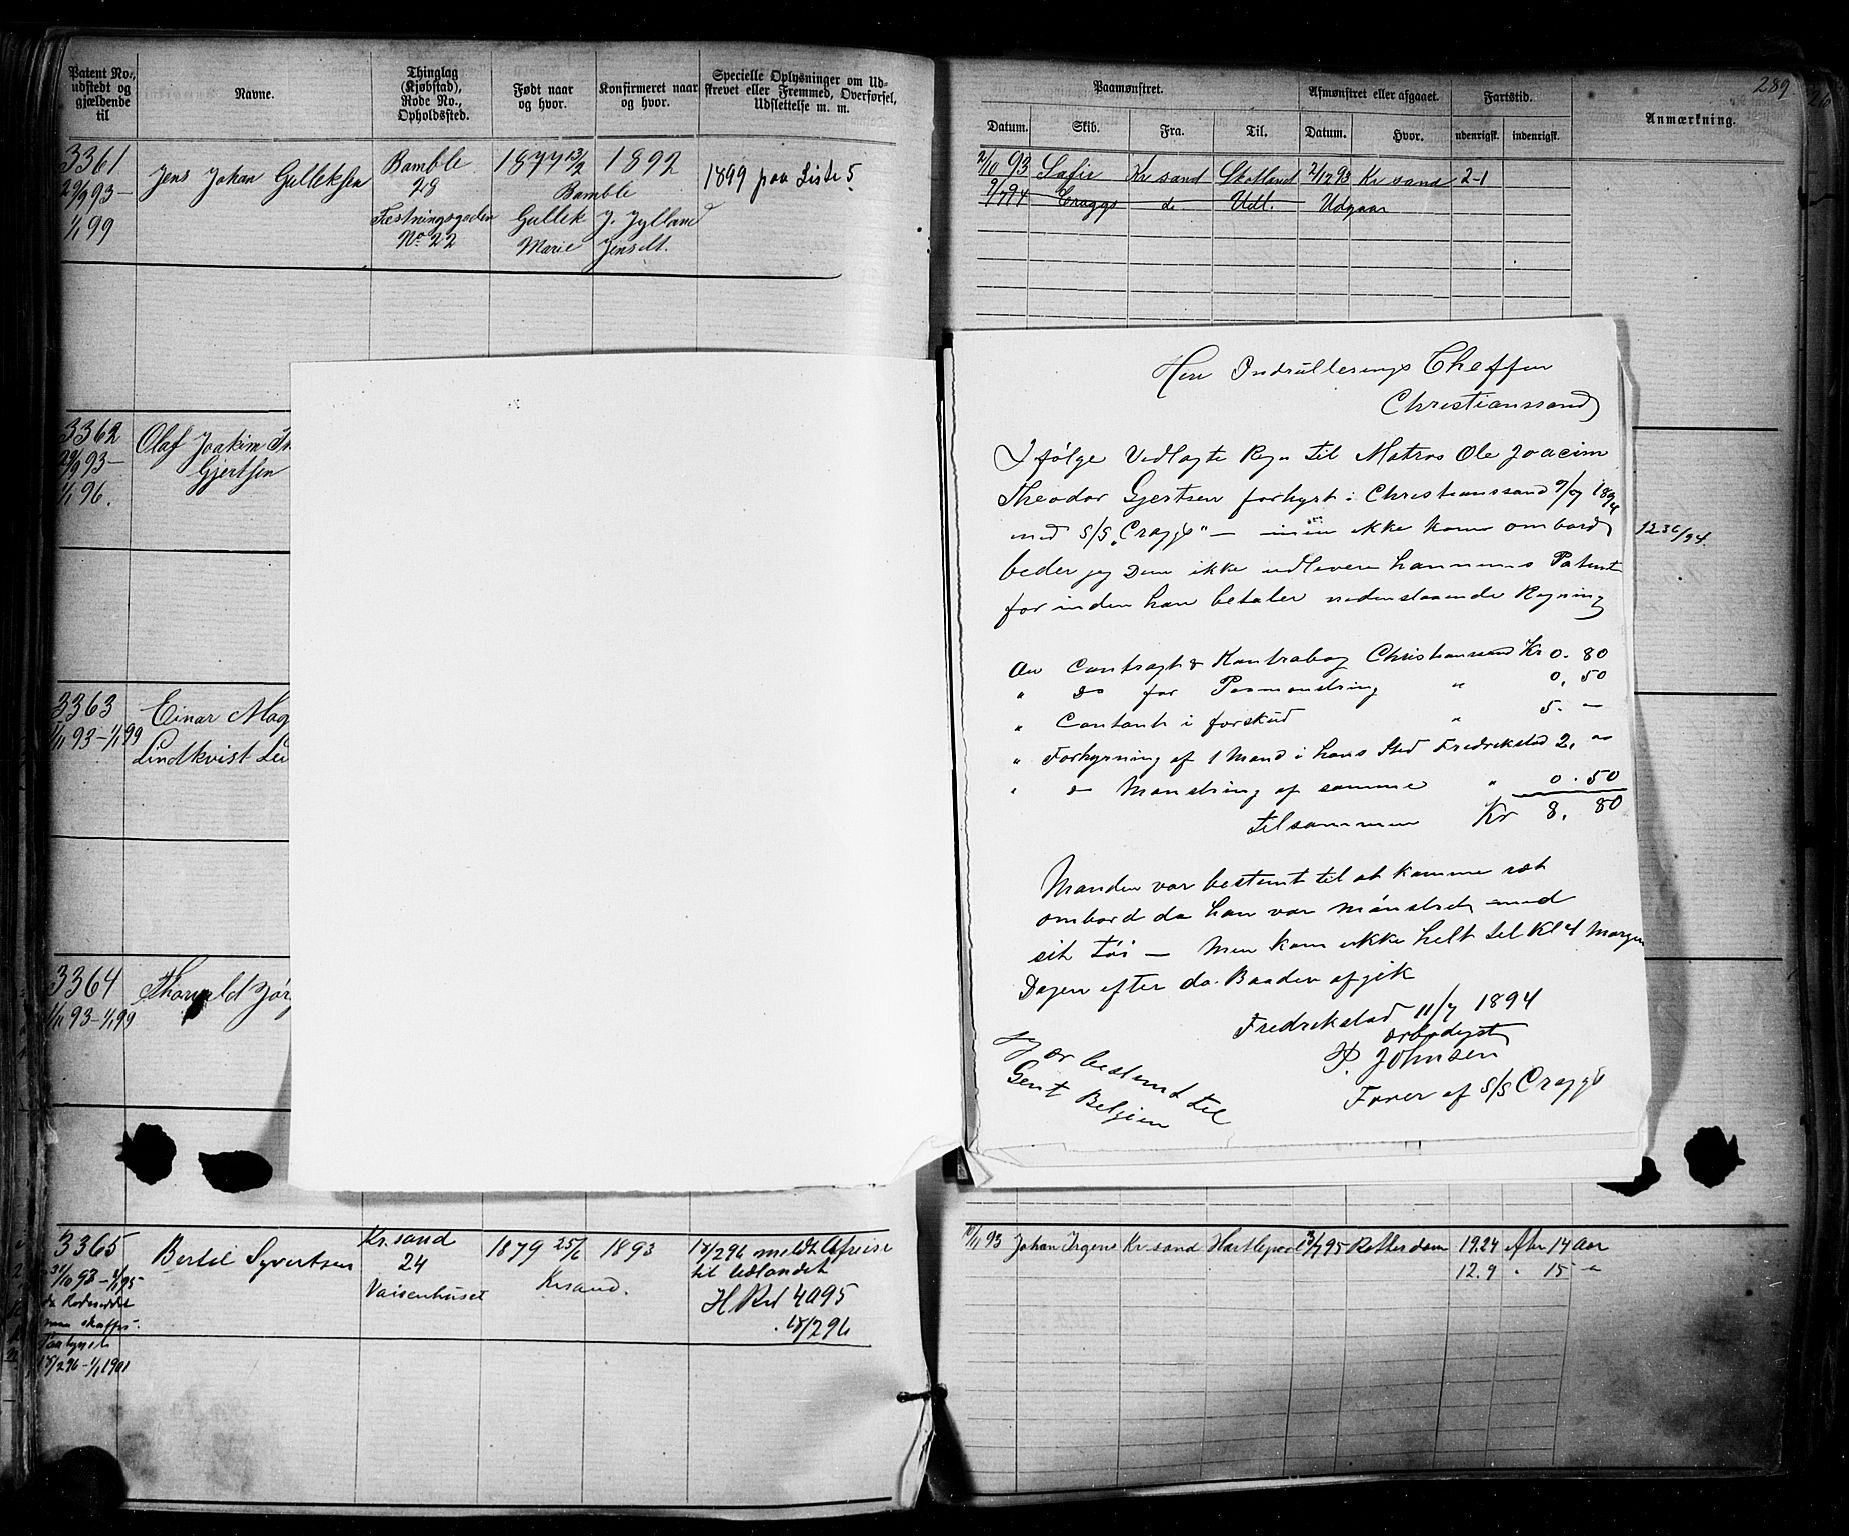 Patent No.,
udstedt og
gjældende
til
Navne.
Thinglag
(Kjøbstad),
Rode No.,
Opholdssted.
Født naar
og hvor.
Konfirmeret naar
og hvor.
Specielle Oplysninger om Ud-
skrevet eller Fremmed, Overførsel,
Udslettelse m. m.
3361
29/9 93 —
1/1 99
Jens Johan Gulleksen
Bamble
29
Festningsgaden
No 22
1877 13/2
1892
Bamble
Gullek J. Jylland
Marie Jensdt.
1899 paa Liste 5.
3362
29/9 93 —
1/1 96.
Olaf Joakim
Gjertsen
3363
1/11 93 — 1/1 99
Einar Mag
Lindkvist
3364
1/11 93 — 1/1 99
Thorvald Jør
3365
31/10 93 — 1/1 95
Bertel Syvertsen
Kr.sand
24
Vaisenhuset
1879 25/6
1893
Krsand.
15/2 96 meldt Afreise
til Udlandet
H Rul 4095
15/2 96
15/2 96 — 1/1 1901
289
Paamønstret.
Afmønstret eller afgaaet.
Fartstid.
Anmærkning.
Datum.
Skib.
Fra.
Til.
Datum.
Hvor.
udenrigsk.
indenrigsk.
2/10 93 Safir Kr sand Skotland 2/12 93 Kr sand 2-1
9/7 94 Craggs do Udl. Udgaar
Herr Indrullerings Cheffen
Christianssand
I følge Vedlagte Regn til Matros Ole Joacim
Theodor Gjertsen forhyrt i Christianssand 9/7 1894
med S/S „Craggs" — men ikke kom ombord
beder jeg Dem ikke udlevere hannems Patent
forinden han betaler nedenstaaende Regning
1236/94.
An Contragt & Kontrabog Christianssand Kr 0. 80
" do for Paamønstring " 0. 50
" Contant i forskud " 5. —
" Forhyrning af 1 Mand i hans Sted Fredrikstad 2, —
" do Mønstring af samme " 0. 50
tilsammen Kr 8. 80
Manden var bestemt til at komme ret
ombord da han var mønstret med
sit tøi — Men kom ikke helt til Kl 4 Morgen
Dagen efter da Baaden afgik
Fredrikstad 11/7 1894
ærbødigst
P. Johnsen
Fører af S/S Craggs
Jeg er bestemt til
Gent Belgien
10/11 93 Johan Irgens Kr.sand Hartlepool 13/7 95 Rotterdam 19.24 Afr 14 Aar
12.9 " 15 "